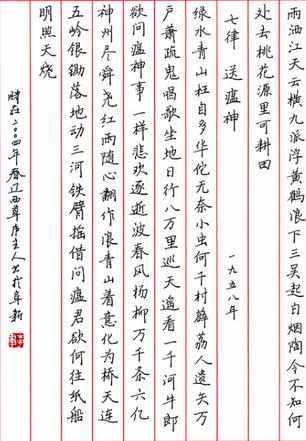 雨洒江天云横九派浮黄鹤浪下三吴起白烟陶令不知何
处去桃花源里可耕田
七律 送瘟神 一九五八年
绿水青山枉自多华佗无奈小虫何千村薜荔人遗矢万
户萧疏鬼唱歌坐地日行八万里巡天遥看一千河牛郎
欲问瘟神事一样悲欢逐逝波春风杨柳万千条六亿
神州尽舜尧红雨随心翻作浪青山着意化为桥天连
五岭银锄落地动三河铁臂摇借问瘟君欲何往纸船
明照天烧
时在二〇〇四年春辽西草庐主人书于阜新